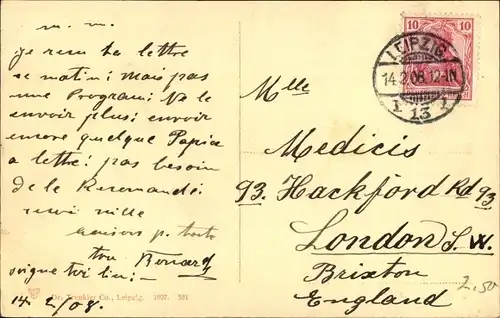 m. m.
je resu ta lettre
se matin: mais pas
une Program: Ne le
envoir plus: envoir
encore quelque Papier
a lettre: pas besoin
de le Recomandé
mille
ton Bernard
soigne toi bien:
14. 2/08.
Dr. Trenkler Co., Leipzig. 1907. 531
10
LEIPZIG
14.2.08.12-1N
13
Mlle
Medicis
93. Hackford Rd 93
London S.W.
Brixton
England
2.50